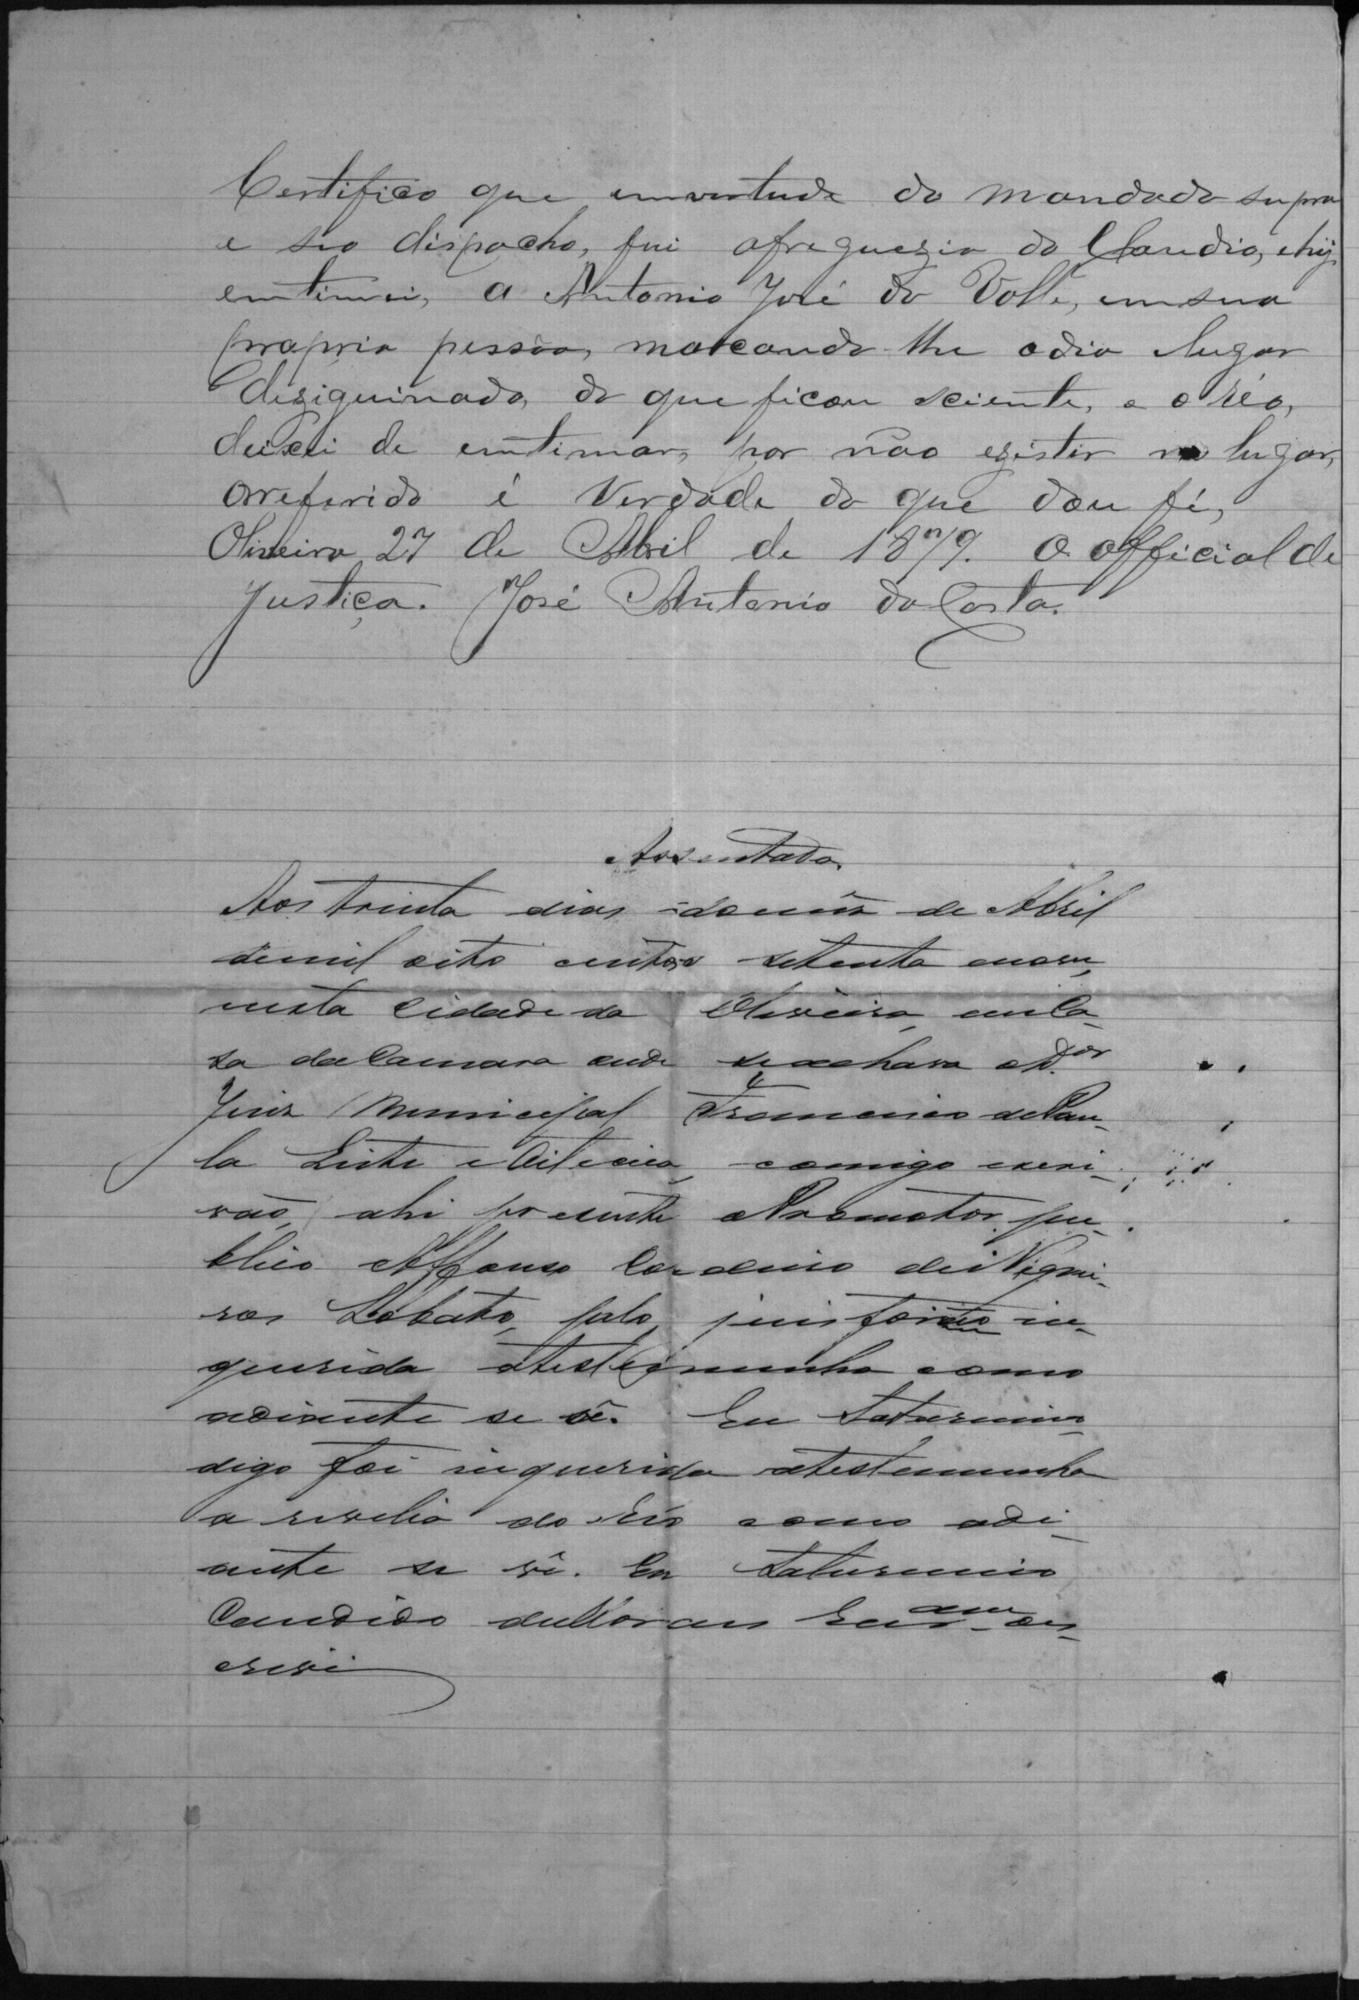 Certifico que emvertude do mandado supra
e seo dispacho, fui afreguezia do Claudio, ehy
emtimei, a Antonio José do Valle, em sua
propria pessôa, marcando lhe odia elugar
desiguinado, do que ficou sciente, e o réo,
deixei de emtimar, por não egistir no lugar,
orreferido é verdade do que dou fé,
Oliveira 27 de Abril de 1879. O official de
Justiça. José Antonio da Costa.
Assentada
Aos trinta dias do mês de Abril
demil oito centos e setenta enove,
nesta Cidade da Oliveira, em Ca-
sa da Camara onde seachava o Dor
Juiz Municipal Francisco de Pau-
la Leite e Oiticica, comigo escri-
vão, ahi presente o Promotor pu-
blico Affonso Cordeiro de Negrei-
ros Lobato, pelo juis foi in-
querida atestemunha como
adiante se vê. Eu Saturnino
digo foi inquerida atestemunha
a revelia do Réo como adi-
ante se vê. Eu Saturnino
Candido de Moraes Escram que es-
crevi